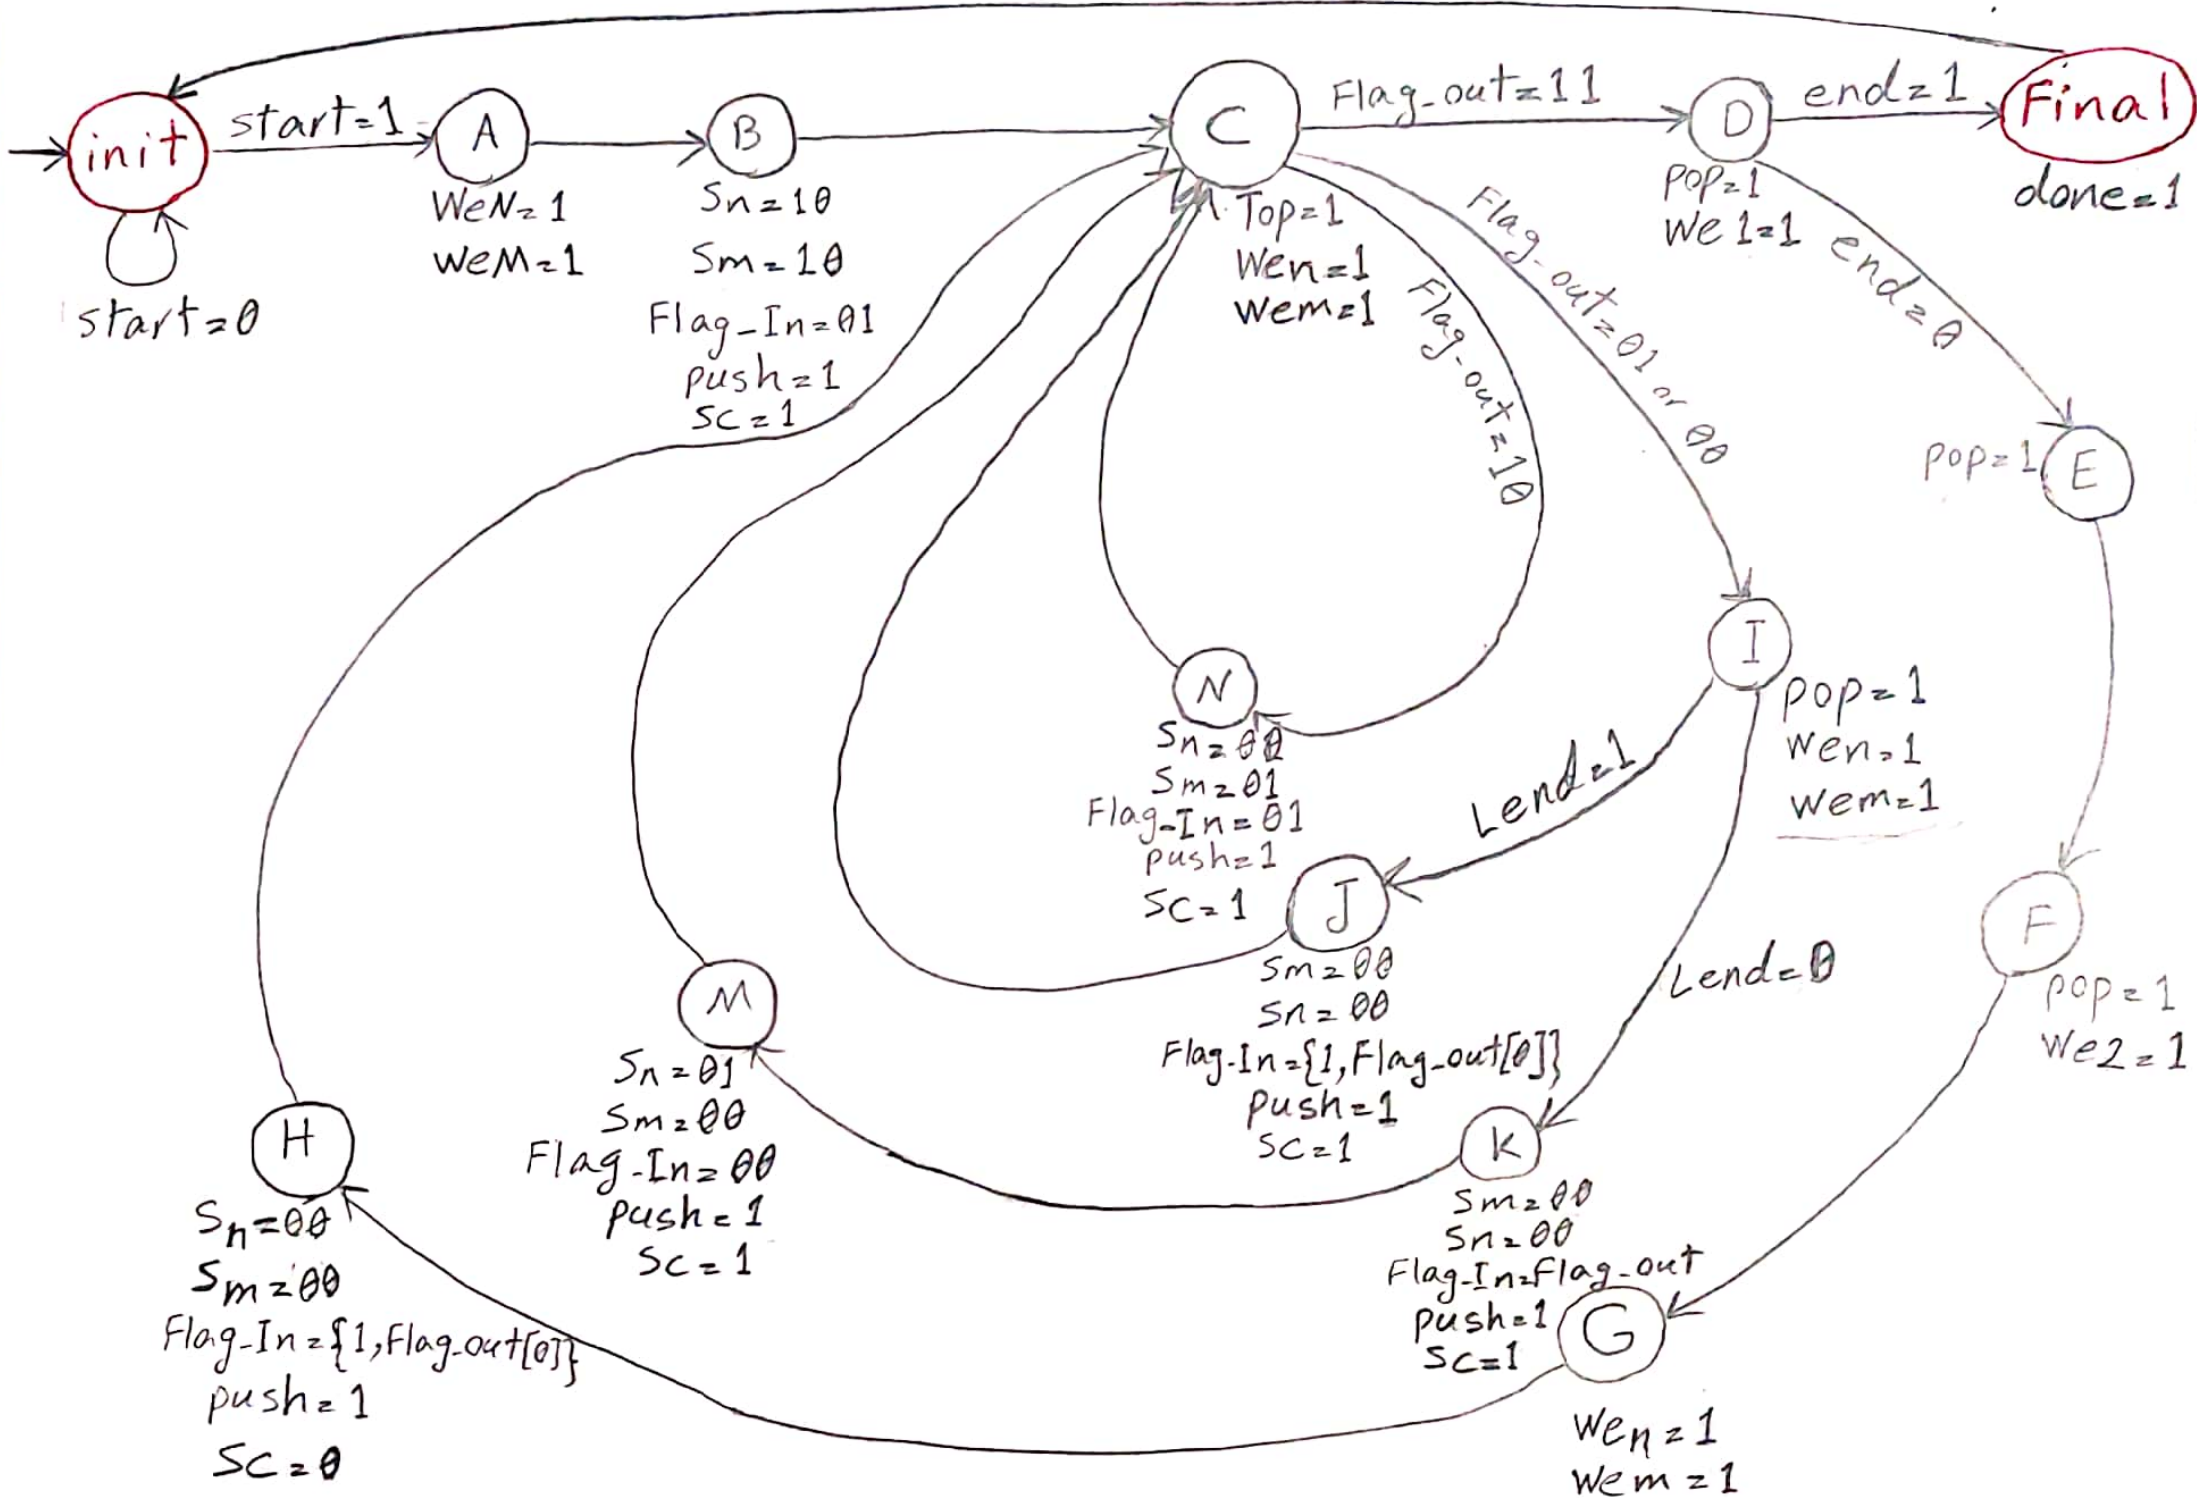 init
start=0
start=1
A
WeN=1
WeM=1
B
Sn=10
Sm=10
Flag_In=01
push=1
SC=1
C
Top=1
Wen=1
Wem=1
Flag_out=11
D
pop=1
We1=1
end=1
Final
done=1
end=0
E
pop=1
Flag_out=01 or 00
Flag_out=10
N
Sn=00
Sm=01
Flag_In=01
push=1
SC=1
I
pop=1
Wen=1
Wem=1
Lend=1
J
Sm=00
Sn=00
Flag_In={1,Flag_out[0]}
push=1
SC=1
Lend=0
F
pop=1
We2=1
M
Sn=01
Sm=00
Flag_In=00
push=1
SC=1
K
Sm=00
Sn=00
Flag_In=Flag_out
push=1
SC=1
H
Sn=00
Sm=00
Flag_In={1,Flag_out[0]}
push=1
SC=0
G
Wen=1
Wem=1